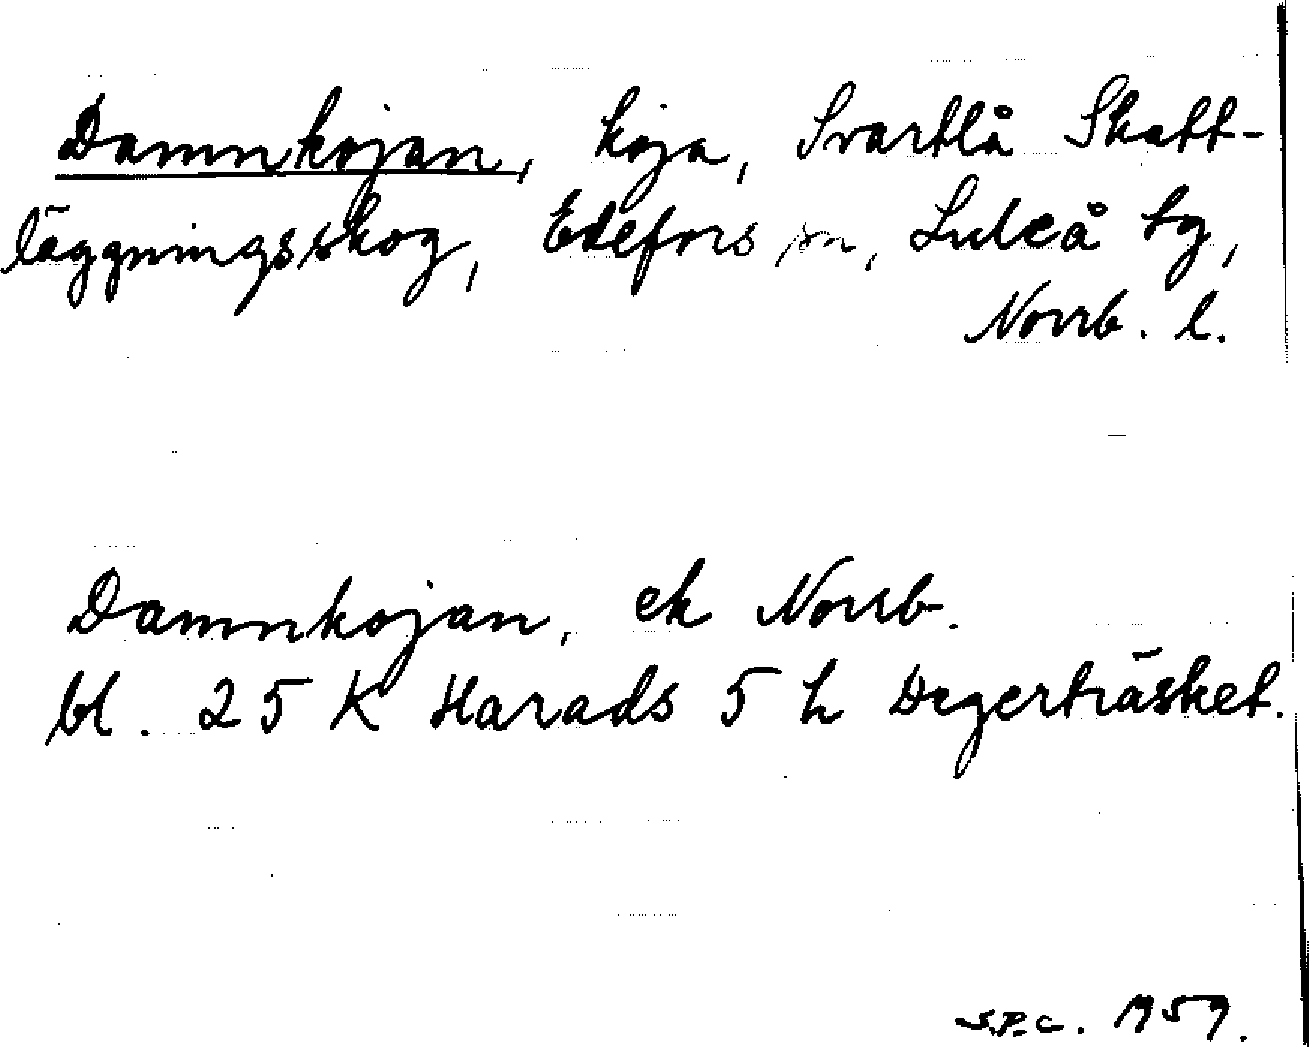 Damnkojan, koja, Svartlå Skatt-
läggningsskog, Edefors sn, Luleå tg,
Norrb. l.
Damnkojan, ek Norrb.
bl. 25 K Harads 5 h Degerträsket.
S.P.C. 1959.